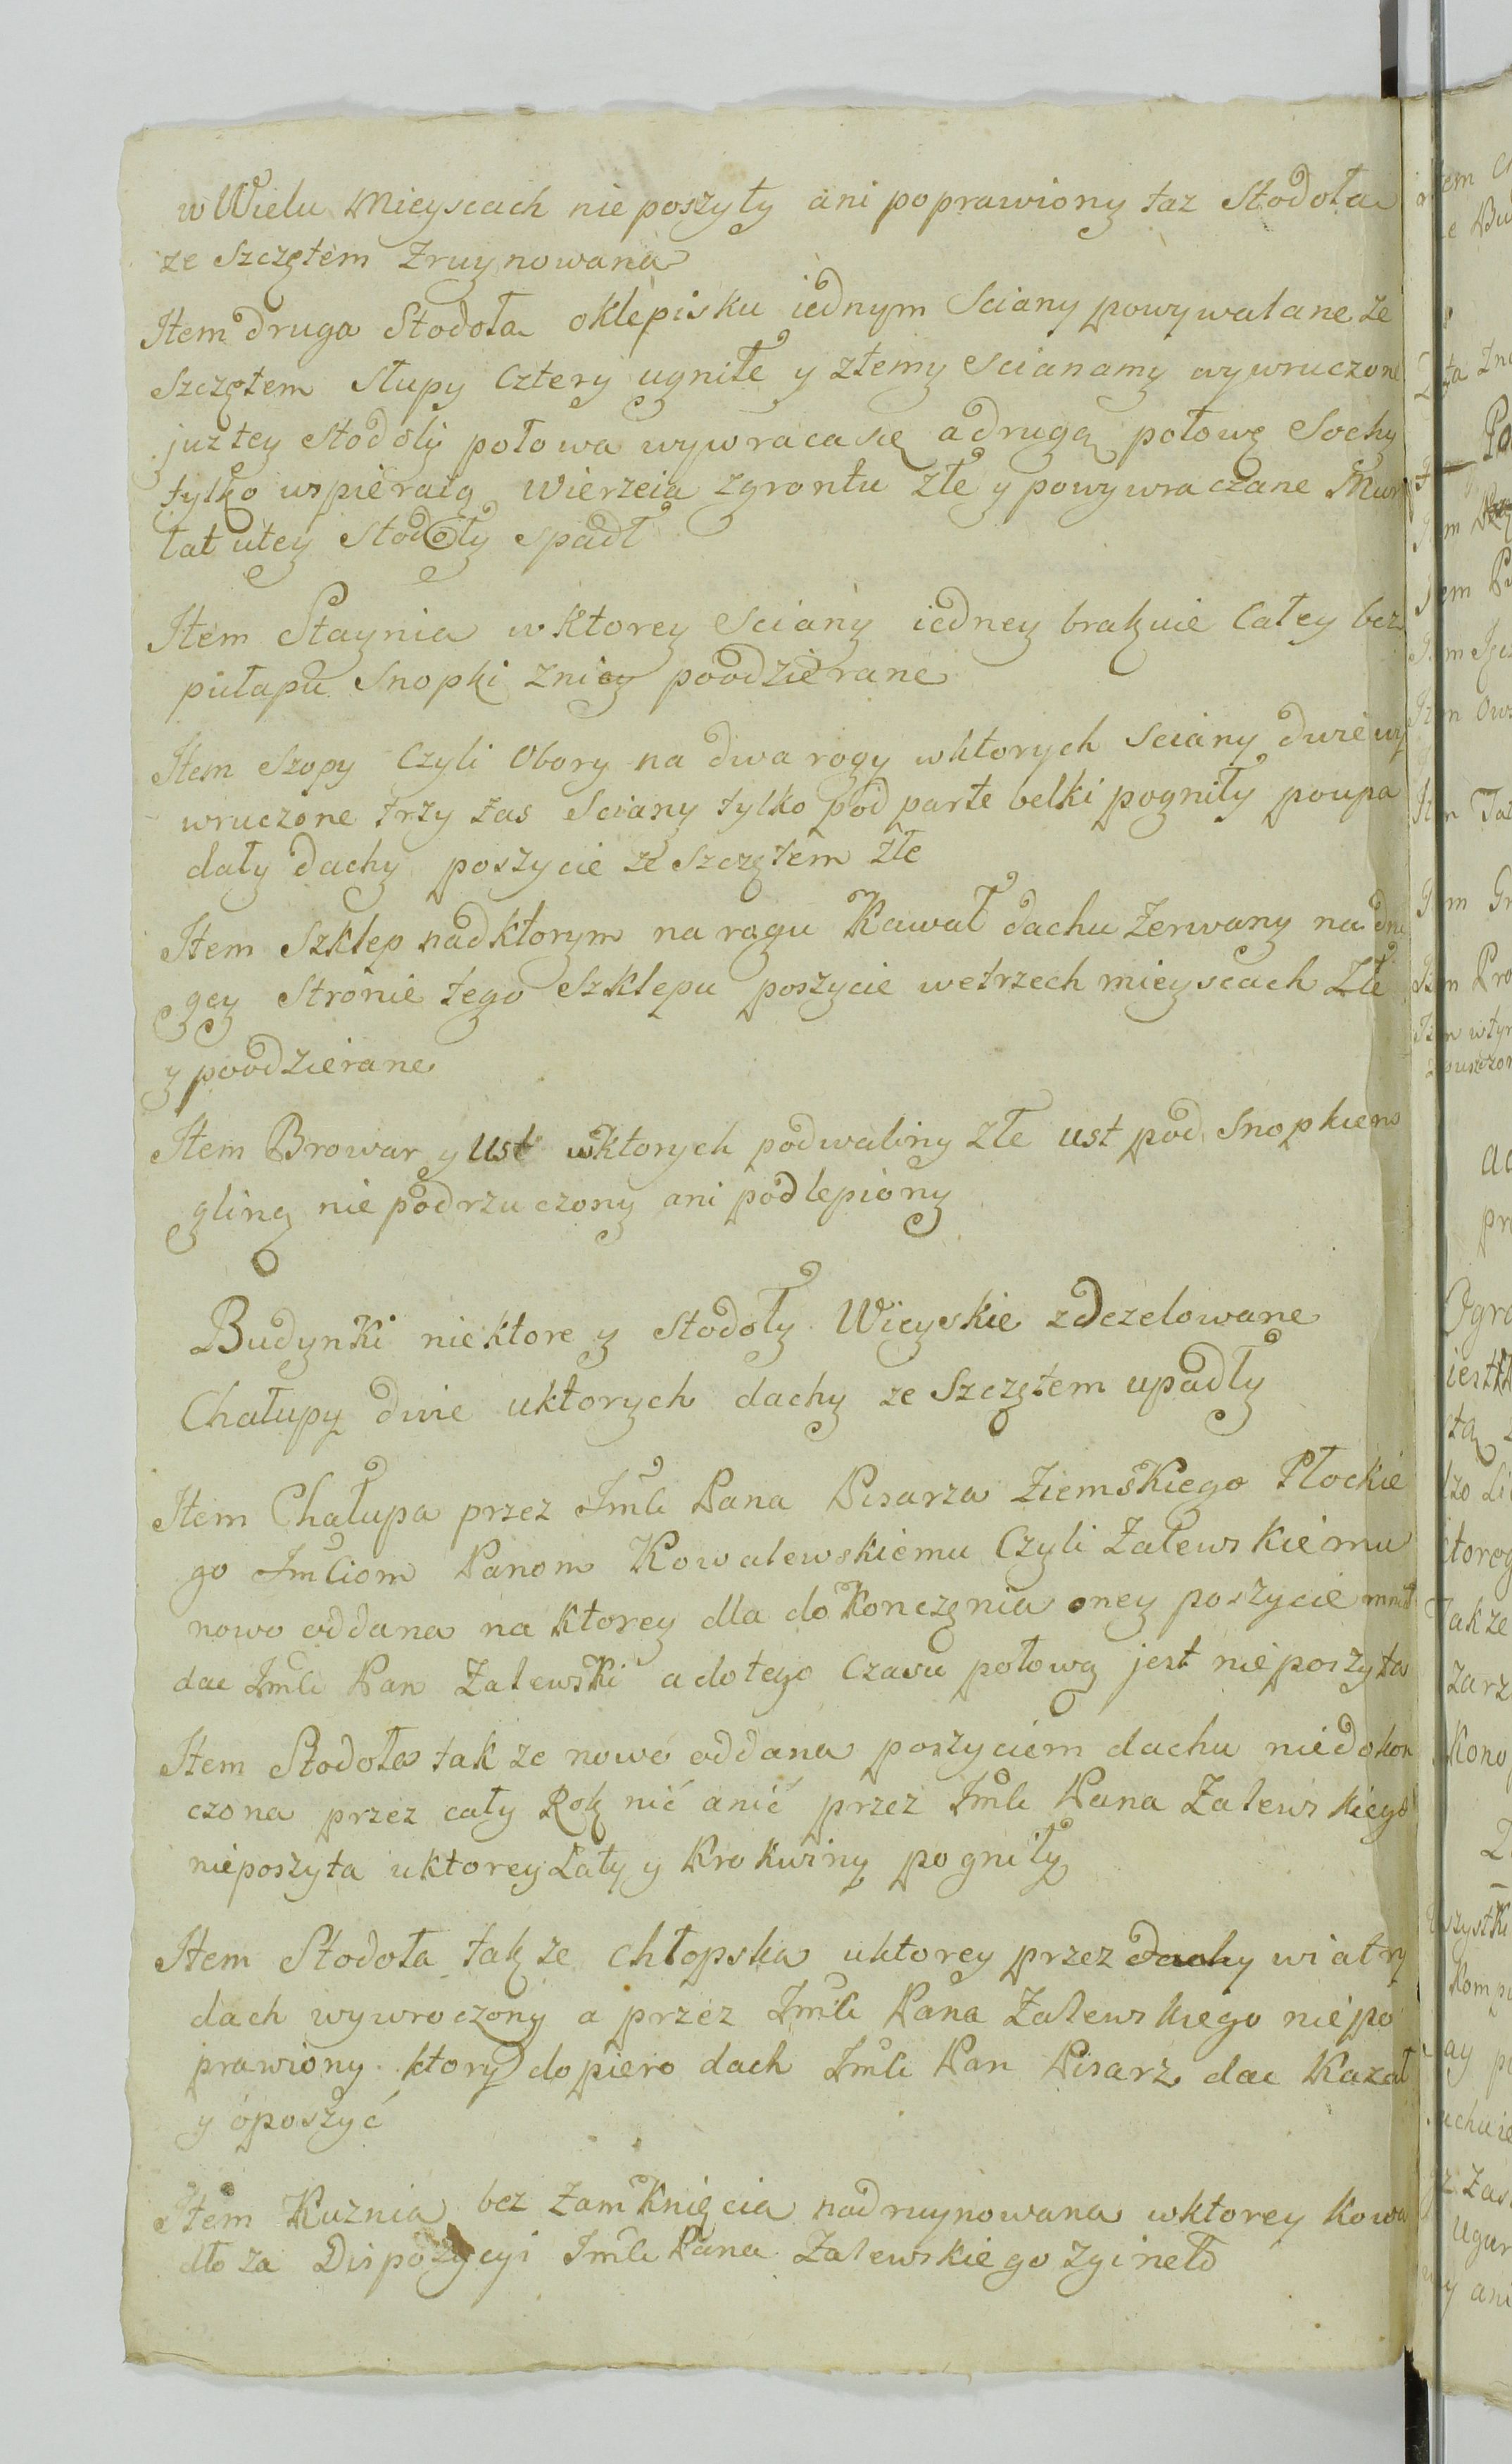 w Wielu Mieyscach nie poszyty ani poprawiony taz Stodoła
ze Szczętem Zruynowana
Item druga Stodoła oklepisku iednym Sciany powywalane ze
Szczętem Słupy Cztery ugniłe y ztemy Scianamy wywruczone
juz tey stodoły połowa wywraca się a drugą połowę Sochy
tylko wspieraią Wierzeia zgrontu złe y powywraczane Mur
łat utey Stodoły spadł
Item Staynia w ktorey Sciany iedney brakuie Całey bez
pułapu Snopki zniey poodzierane
Item Szopy Czyli Obory na dwa rogy wktorych Sciany dwie wy
wruczone trzy zas Sciany tylko pod parte belki pogniły poupa
dały dachy poszycie ze Szczętem złe
Item Szklep nadktorym na rogu Kawał dachu Zerwany na dru
gey Stronie tego Szklepu poszycie wetrzech mieyscach Złe
y poodzierane
Item Browar y Ust wktorych podwaliny złe ust pod Snopkiem
gliną nie podrzuczony ani podlepiony
Budynki niektore y stodoły Wieyskie zdezelowane
Chałupy dwie uktorych dachy ze Szczętem upadły
Item Chałupa przez Jmći Pana Pisarza Ziemskiego Płockie
go Jmćiom Panom Kowalewskiemu Czyli Zalewskiemu
nowo oddana na ktorey dla dokonczęnia oney poszycie miał
dac Jmći Pan Zalewski a dotego Czasu połową jest nieposzyta
Item Stodoła tak ze nowo oddana poszyciem dachu niedokon
czona przez cały Rok nić anić przez Jmći Pana Zalewskiego
nieposzyta uktorey Łaty y Krokwiny pogniły
Item Stodoła tak ze chłopska uktorey przez dachy wiatry
dach wywroczony a przez Jmći Pana Zalewskiego niepo
prawiony ktory dopiero dach Jmći Pan Pisarz dac Kazał
y oposzyć
Item Kuznia bez Zamknięcia nadruynowana wktorey Kowa
dło za Dispozycyi Jmći Pana Zalewskiego zgineło